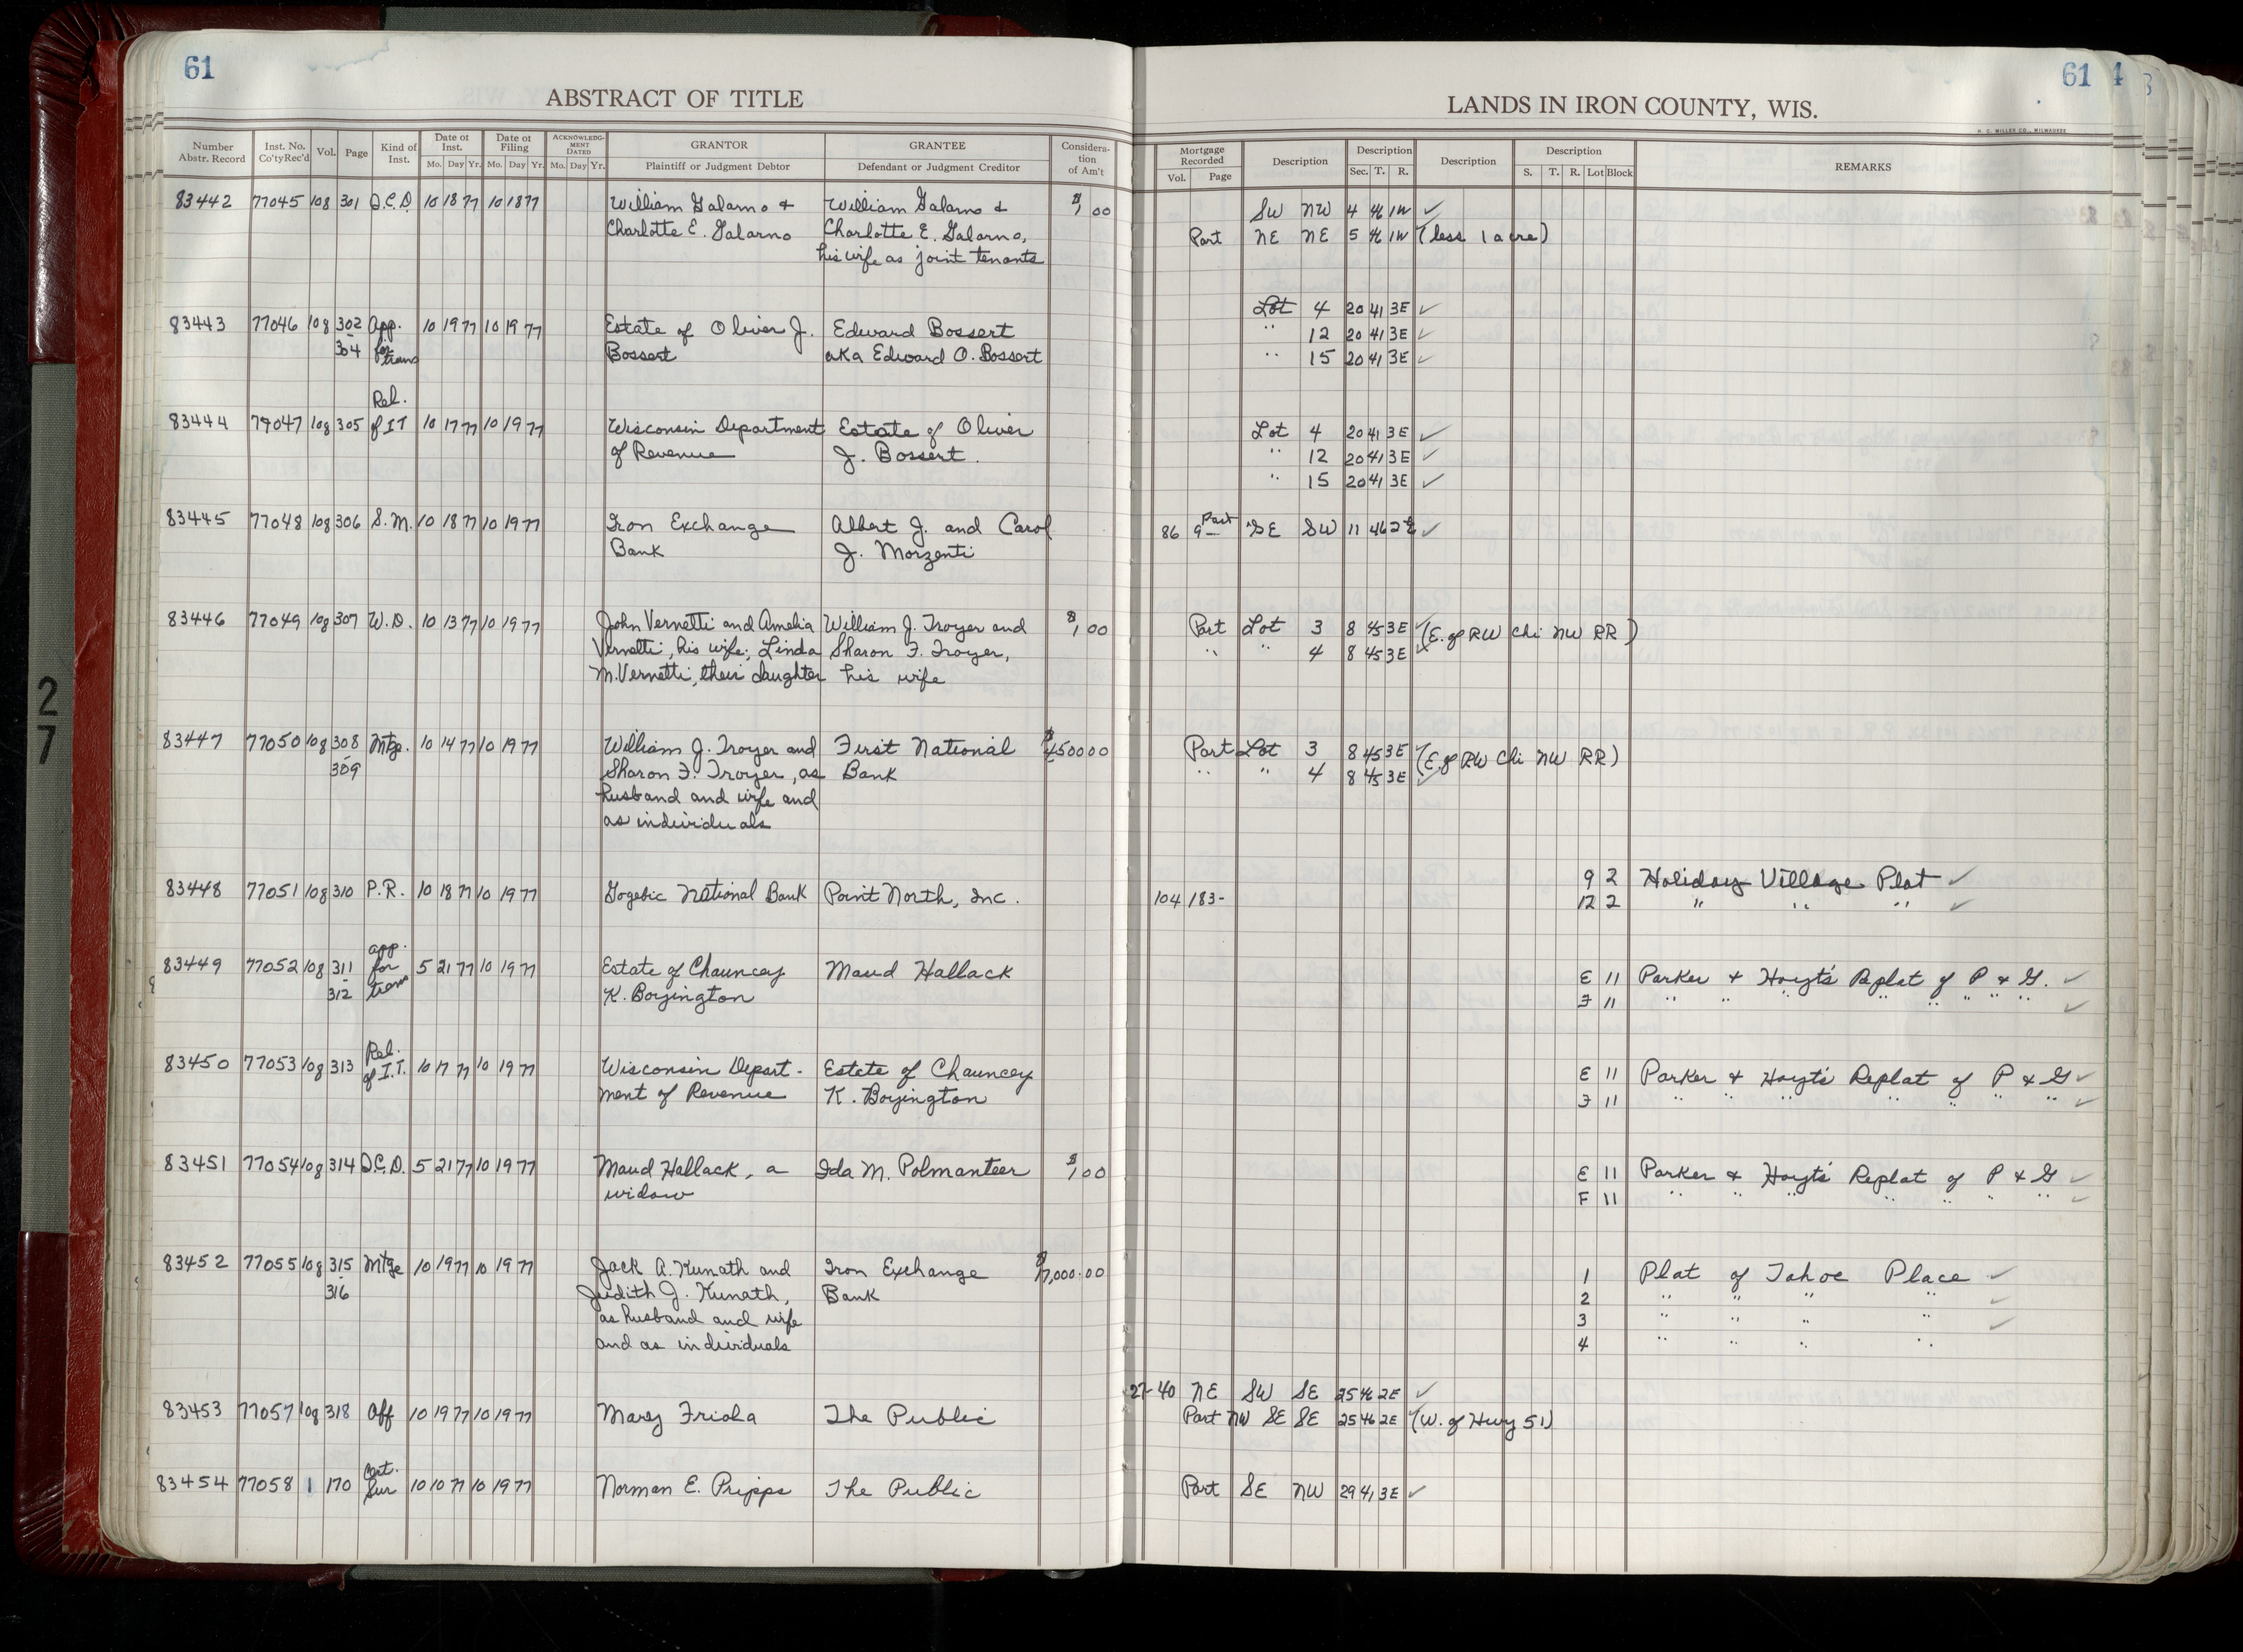 61
ABSTRACT OF TITLE
Number Abstr. Record Inst. No. Co'ty Rec'd Vol. Page Kind of Inst. Date of Inst. Mo. Day Yr. Date of Filing Mo. Day Yr. ACKNOWLEDGMENT DATED Mo. Day Yr. GRANTOR Plaintiff or Judgment Debtor GRANTEE Defendant or Judgment Creditor Consideration of Am't
61
LANDS IN IRON COUNTY, WIS.
H. C. MILLER CO., MILWAUKEE
Mortgage Recorded Vol. Page Description Description Sec. T. R. Description Description S. T. R. Lot Block REMARKS
83442 77045 108 301 Q.C.D. 10 18 77 10 18 77 William Galarno & William Galarno & $1 00 SW NW 4 46 1W ✓
Charlotte E. Galarno Charlotte E. Galarno, Part NE NE 5 46 1W (less 1 acre)
his wife as joint tenants
Lot 4 20 41 3E ✓
83443 77046 108 302 App. 10 19 77 10 19 77 Estate of Oliver J. Edward Bossert " 12 20 41 3E ✓
304 for trans Bossert aka Edward O. Bossert " 15 20 41 3E ✓
Rel.
83444 77047 108 305 of IT 10 17 77 10 19 77 Wisconsin Department Estate of Oliver Lot 4 20 41 3E ✓
of Revenue J. Bossert. " 12 20 41 3E ✓
" 15 20 41 3E ✓
83445 77048 108 306 S.M. 10 18 77 10 19 77 Iron Exchange Albert J. and Carol 86 9- Part SE SW 11 46 2E ✓
Bank J. Morzenti
83446 77049 108 307 W.D. 10 13 77 10 19 77 John Vernetti and Amelia William J. Troyer and $1 00 Part Lot 3 8 45 3E ✓ (E. of RW Chi NW RR)
Vernetti, his wife; Linda Sharon F. Troyer, " " 4 8 45 3E ✓
M. Vernetti, their daughter his wife
83447 77050 108 308 Mtge. 10 14 77 10 19 77 William J. Troyer and First National $4500 00 Part Lot 3 8 45 3E ✓ (E. of RW Chi NW RR)
309 Sharon F. Troyer, as Bank " " 4 8 45 3E ✓
husband and wife and
as individuals
9 2 Holiday Village Plat ✓
83448 77051 108 310 P.R. 10 18 77 10 19 77 Gogebic National Bank Point North, Inc. 104 183- 12 2 " " " ✓
app.
83449 77052 108 311 for 5 21 77 10 19 77 Estate of Chauncey Maud Hallack E 11 Parker & Hoyt's Replat of P & G. ✓
312 trans K. Boyington F 11 " " " " " " " ✓
Rel.
83450 77053 108 313 of I.T. 10 17 77 10 19 77 Wisconsin Depart- Estate of Chauncey E 11 Parker & Hoyt's Replat of P & G ✓
ment of Revenue K. Boyington F 11 " " " " " " " ✓
83451 77054 108 314 Q.C.D. 5 21 77 10 19 77 Maud Hallack, a Ida M. Polmanteer $1 00 E 11 Parker & Hoyt's Replat of P & G ✓
widow F 11 " " " " " " " ✓
83452 77055 108 315 Mtge 10 19 77 10 19 77 Jack A. Kunath and Iron Exchange $17,000.00 1 Plat of Tahoe Place ✓
316 Judith J. Kunath, Bank 2 " " " " ✓
as husband and wife 3 " " " " ✓
and as individuals 4 " " " "
27-40 NE SW SE 25 46 2E ✓
83453 77057 108 318 Aff 10 19 77 10 19 77 Mary Friola The Public Part NW SE SE 25 46 2E (W. of Hwy 51)
Cert.
83454 77058 1 170 Sur 10 10 77 10 19 77 Norman E. Pripps The Public Part SE NW 29 41 3E ✓
27